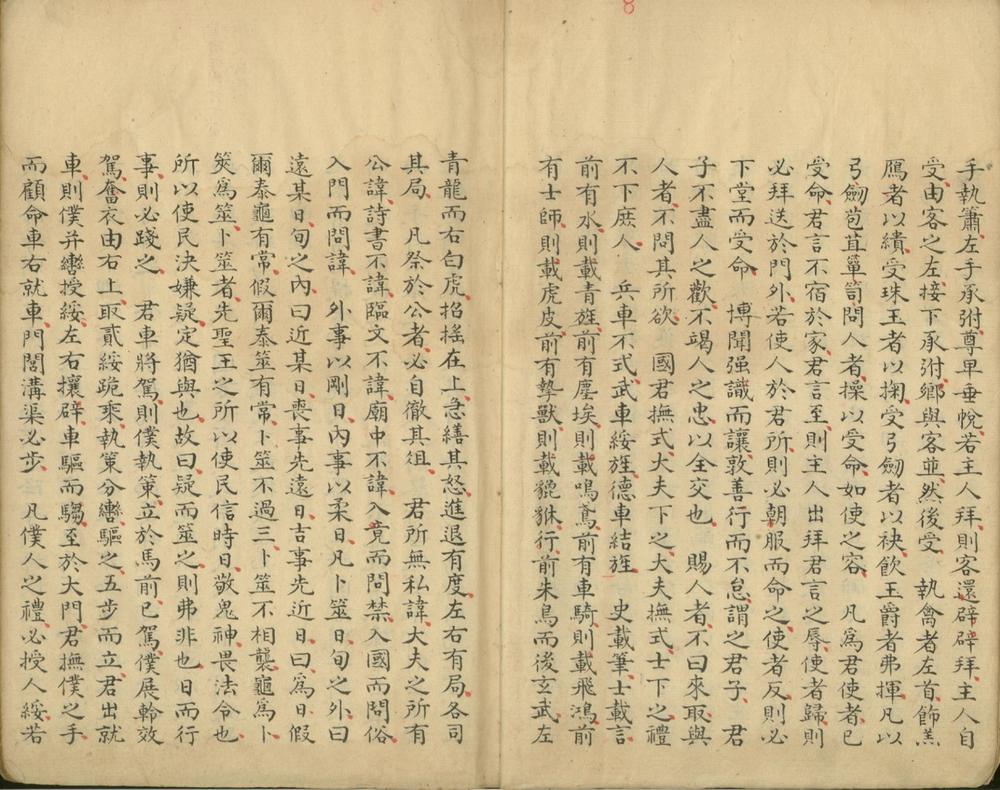 8
手執簫左手承弣尊卑垂帨若主人拜則客還辟辟拜主人自
受由客之左接下承弣鄉與客並然後受 執禽者左首飾羔
鴈者以繢受珠玉者以掬受弓劒者以袂飲玉爵者弗揮凡以
弓劒苞苴簞笥問人者操以受命如使之容 凡爲君使者已
受命君言不宿於家君言至則主人出拜君言之辱使者歸則
必拜送於門外若使人於君所則必朝服而命之使者反則必
下堂而受命 博聞强識而讓敦善行而不怠謂之君子 君
子不盡人之歡不竭人之忠以全交也 賜人者不曰來取與
人者不問其所欲 國君撫式大夫下之大夫撫式士下之禮
不下庶人 兵車不式武車綏旌德車結旌 史載筆士載言
前有水則載青旌前有塵埃則載鳴鳶前有車騎則載飛鴻前
有士師則載虎皮前有摯獸則載貔貅行前朱鳥而後玄武左
青龍而右白虎招搖在上急繕其怒進退有度左右有局各司
其局 凡祭於公者必自徹其俎 君所無私諱大夫之所有
公諱詩書不諱臨文不諱廟中不諱入竟而問禁入國而問俗
入門而問諱 外事以剛日內事以柔日凡卜筮日旬之外曰
遠某日旬之內曰近某日喪事先遠日吉事先近日曰爲日假
爾泰龜有常假爾泰筮有常卜筮不過三卜筮不相襲龜爲卜
筴爲筮卜筮者先聖王之所以使民信時日敬鬼神畏法令也
所以使民決嫌疑定猶與也故曰疑而筮之則弗非也日而行
事則必踐之 君車將駕則僕執策立於馬前已駕僕展軨效
駕奮衣由右上取貳綏跪乘執策分轡驅之五步而立君出就
車則僕并轡授綏左右攘辟車驅而騶至於大門君撫僕之手
而顧命車右就車門閭溝渠必步 凡僕人之禮必授人綏若